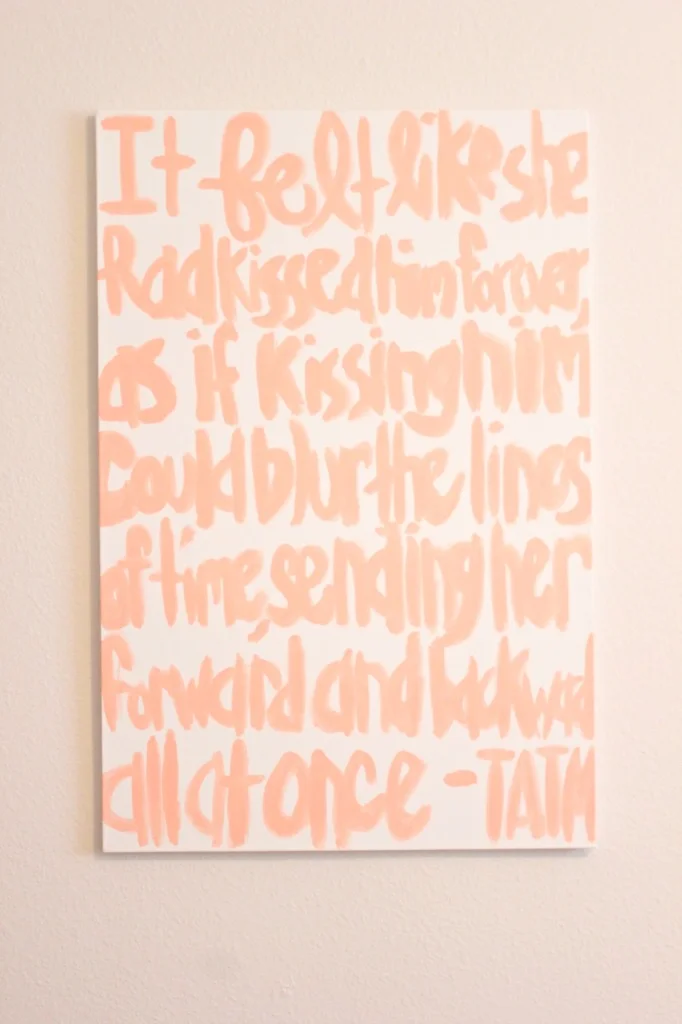 It felt like she
had kissed him forever,
as if kissing him
could blur the lines
of time, sending her
forward and backward
all at once - TATM